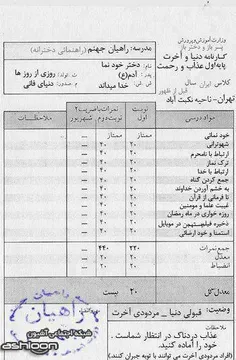 وزارت آموزش و پرورش
پسر باز و دختر باز
کارنامه دنیا و آخرت
پایه اول عذاب و رحمت
کلاس ایران سال
قبل از ظهور
تهران-ناحیه نکبت آباد
مدرسه: راهیان جهنم (راهنمائی دخترانه)
نام: دختر خود نما
پدر: آدم(ع)
ت. تولد: روزی از روز ها
ش. ش: خدا میداند
ص. از: دنیای فانی
مواد درسی
نوبت اول
نمرات باضریب۲
نوبت دوم شهریور
ملاحظات
خود نمائی ممتاز --- ممتاز
شهوترانی ۲۰ --- ۲۰
ارتباط با نامحرم ۲۰ --- ۲۰
ترک نماز ۲۰ --- ۲۰
ارتباط با خدا ۲۰ --- ۲۰
جمع کردن گناه ۲۰ --- ۲۰
به خشم آوردن خداوند ۲۰ --- ۲۰
نا فرمانی از قرآن ۲۰ --- ۲۰
غیبت علما و مومنین ۲۰ --- ۲۰
روزه خواری در ماه رمضان ۲۰ --- ۲۰
ذخیره فیلم بهمن در موبایل ۲۰ --- ۲۰
استمنا و خود ارضائی ۲۰ --- ۲۰
جمع نمرات ۲۲۰ ۴۴۰
معدل ۲۰ ۲۰
انضباط ۲۰ ۲۰
معدل کل ۲۰ بیست
وضعیت: قبولی دنیا _ مردودی آخرت
ملاحظات
عذاب دردناک در انتظار شماست.
خود را آماده کنید.
(مردودی آخرت می توانند با توبه جبران کنند)
راهیان
شبکه اجتماعی آشیون
ashioon